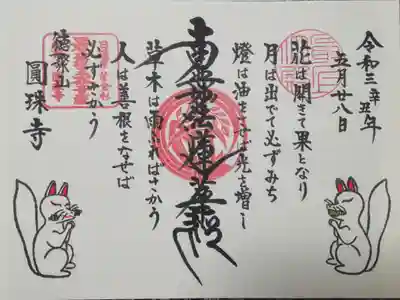 令和三辛丑年
五月廿八日
花は開きて果となり
月は出でて必ずみち
燈は油をさせば光を増し
南無妙法蓮華経
草木は雨ふればさかう
人は善根をなせば
必ずさかう
圓珠寺